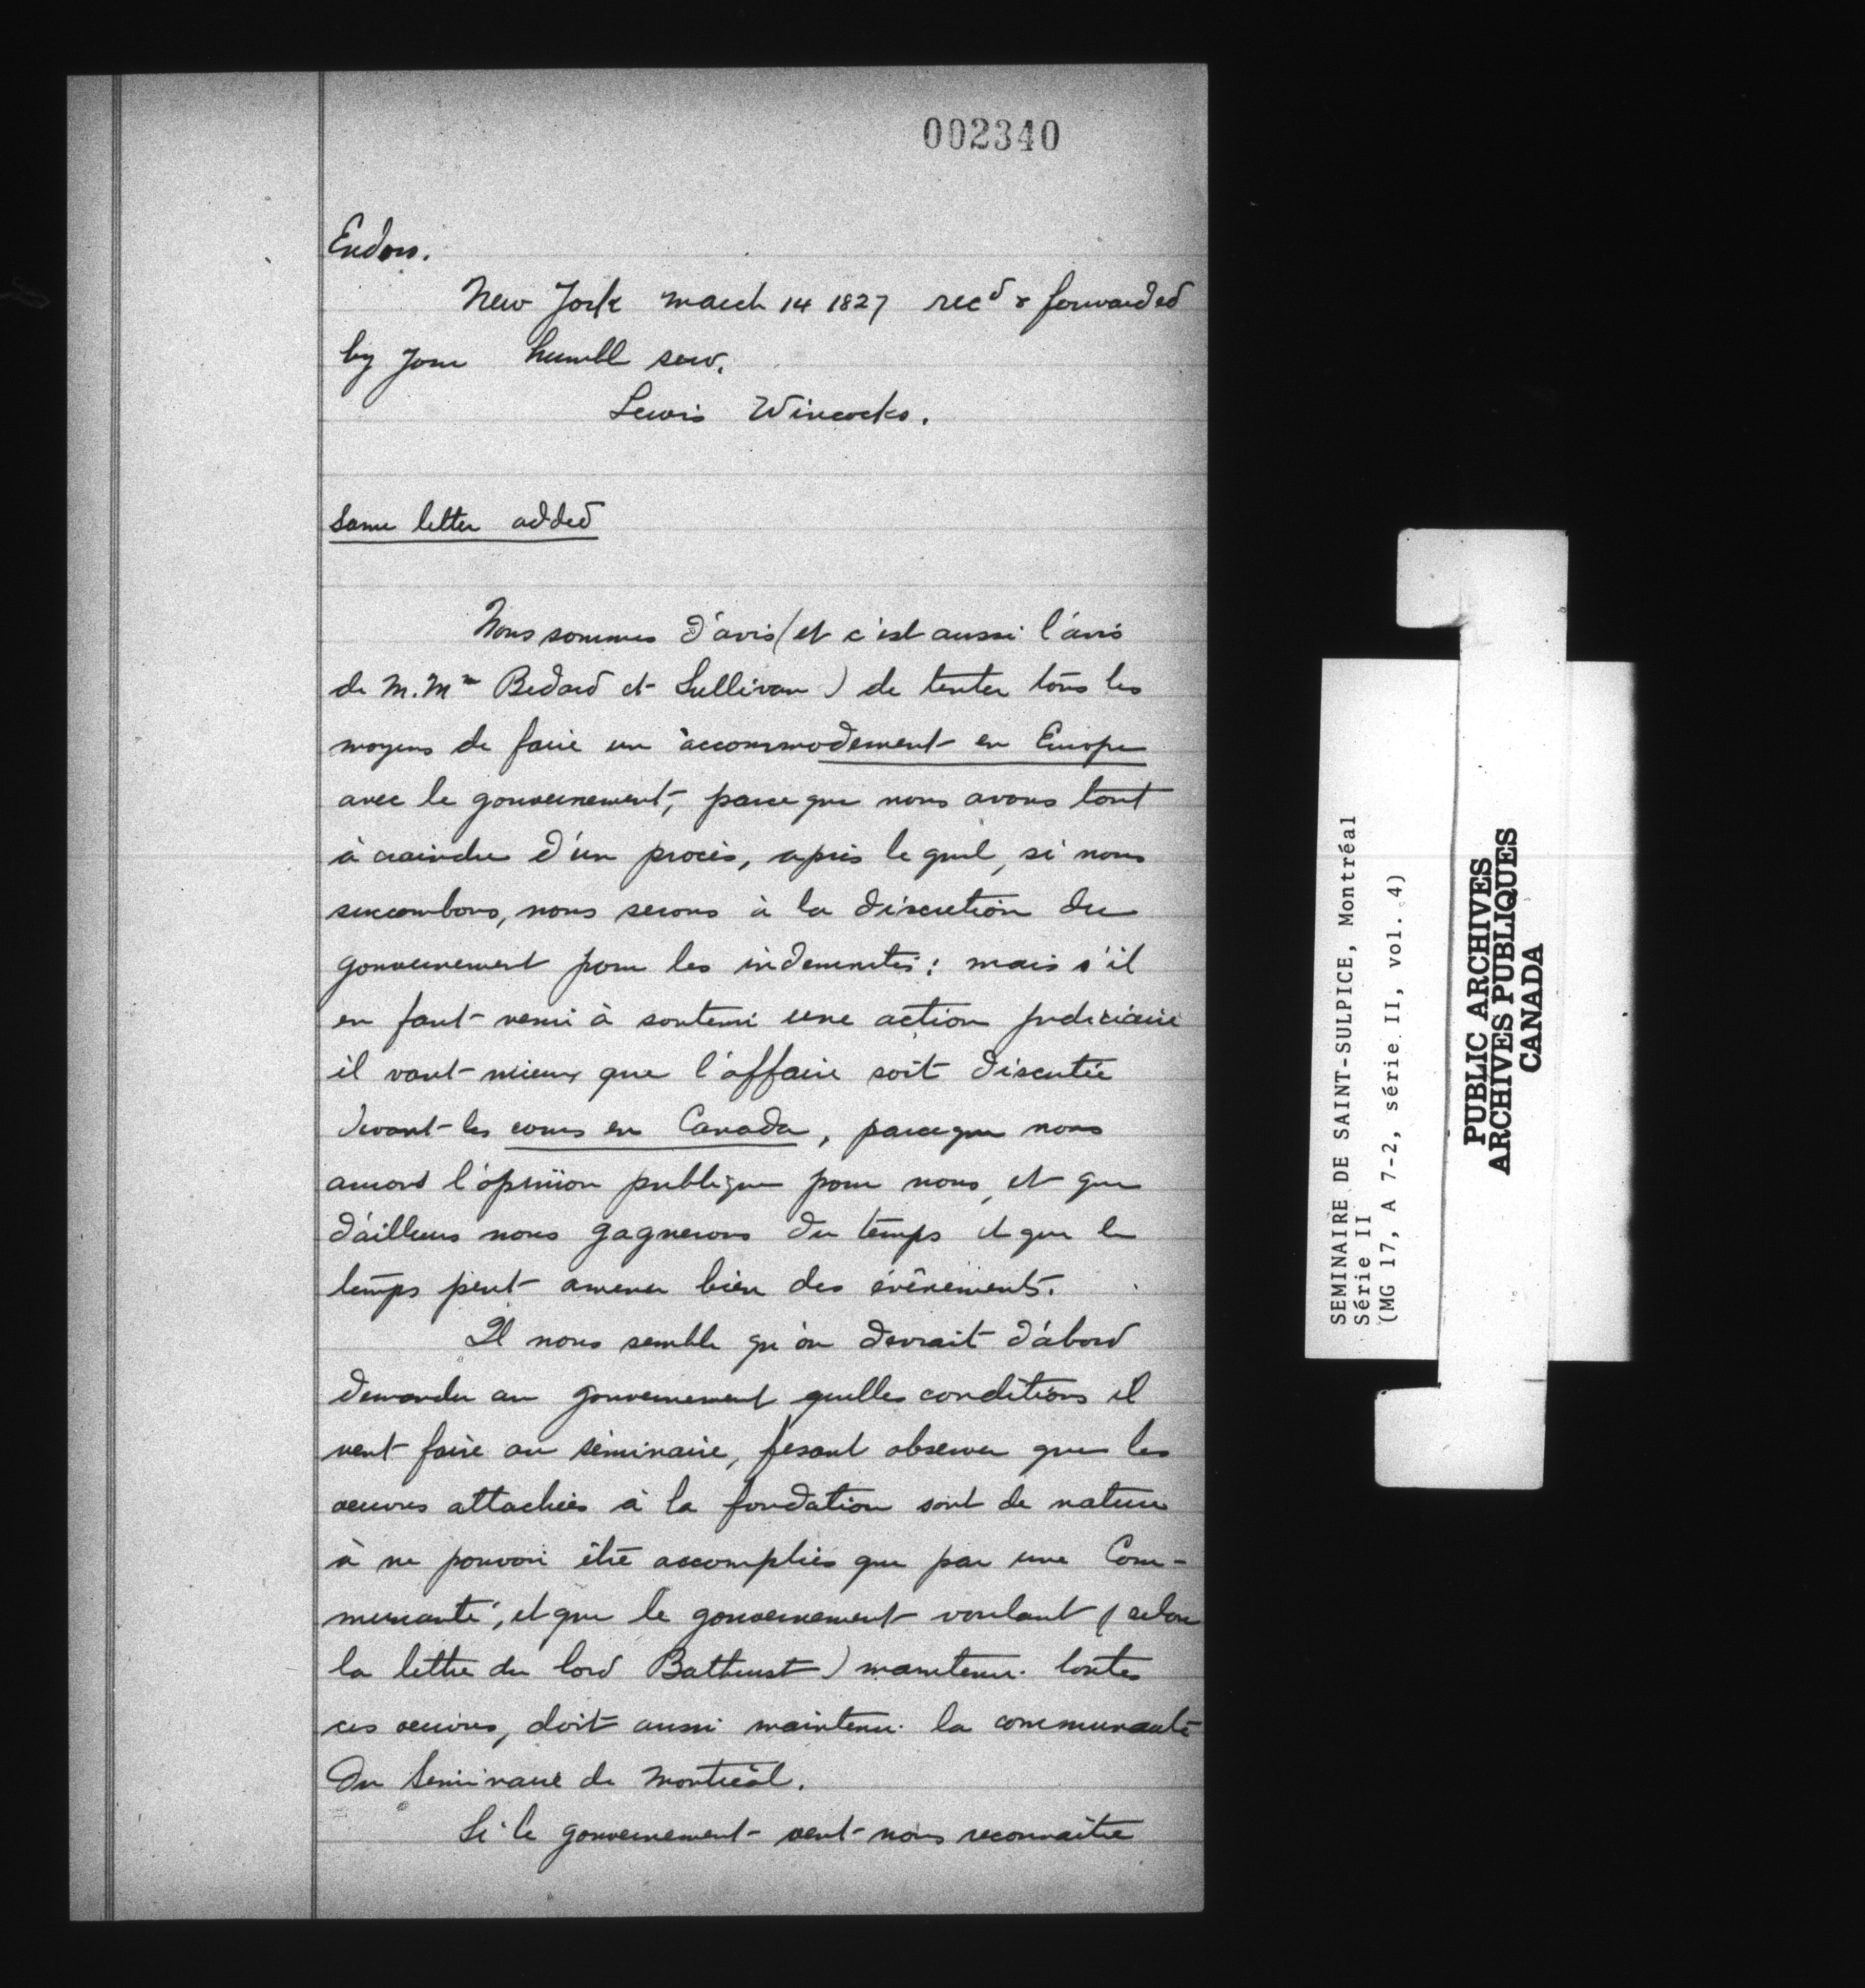 002340
Endors.
New York march 14 1827 recd & forwarded
by your humbl serv.
Lewis Wincocks.
Same letter added
Nous sommes d'avis (et c'est aussi l'avis
de M.Mrs Bedard et Sullivan) de tenter tous les
moyens de faire un accommodement en Europe
avec le gouvernement, parce que nous avons tout
à craindre d'un procès, après le quel, si nous
succombons, nous serons à la discrétion du
gouvernement pour les indemnités: mais s'il
en faut venir à soutenir une action judiciaire
il vaut mieux que l'affaire soit discutée
devant les cours en Canada, parceque nous
aurons l'opinion publique pour nous, et que
d'ailleurs nous gagnerons du temps et que le
temps peut amener bien des évènements.
Il nous semble qu'on devrait d'abord
demander au gouvernement quelles conditions il
veut faire au séminaire, fesant observer que les
oeuvres attachées à la fondation sont de nature
à ne pouvoir être accomplies que par une Com-
munauté, et que le gouvernement voulant (selon
la lettre du lord Bathurst) maintenir toutes
ces oeuvres, doit aussi maintenir la communauté
du Seminaire de Montréal.
Si le gouvernement veut nous reconnaître
SEMINAIRE DE SAINT-SULPICE, Montréal
Série II
(MG 17, A 7-2, série II, vol. 4)
PUBLIC ARCHIVES
ARCHIVES PUBLIQUES
CANADA